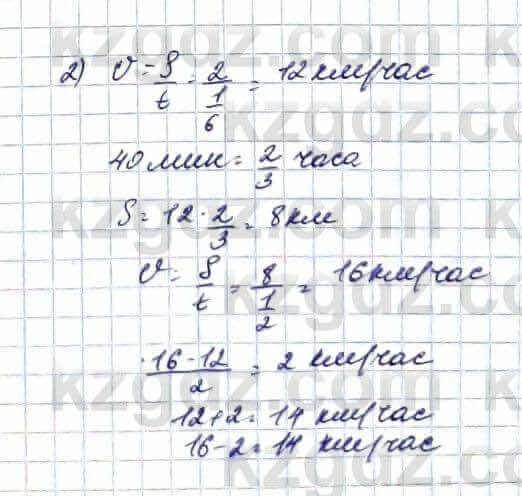 2) v = S/t = 2/(1/6) = 12 км/час
40 мин = 2/3 часа
S = 12 · 2/3 = 8 км
v = S/t = 8/(1/2) = 16 км/час
(16 - 12)/2 = 2 км/час
12 + 2 = 14 км/час
16 - 2 = 14 км/час
kzgdz.com